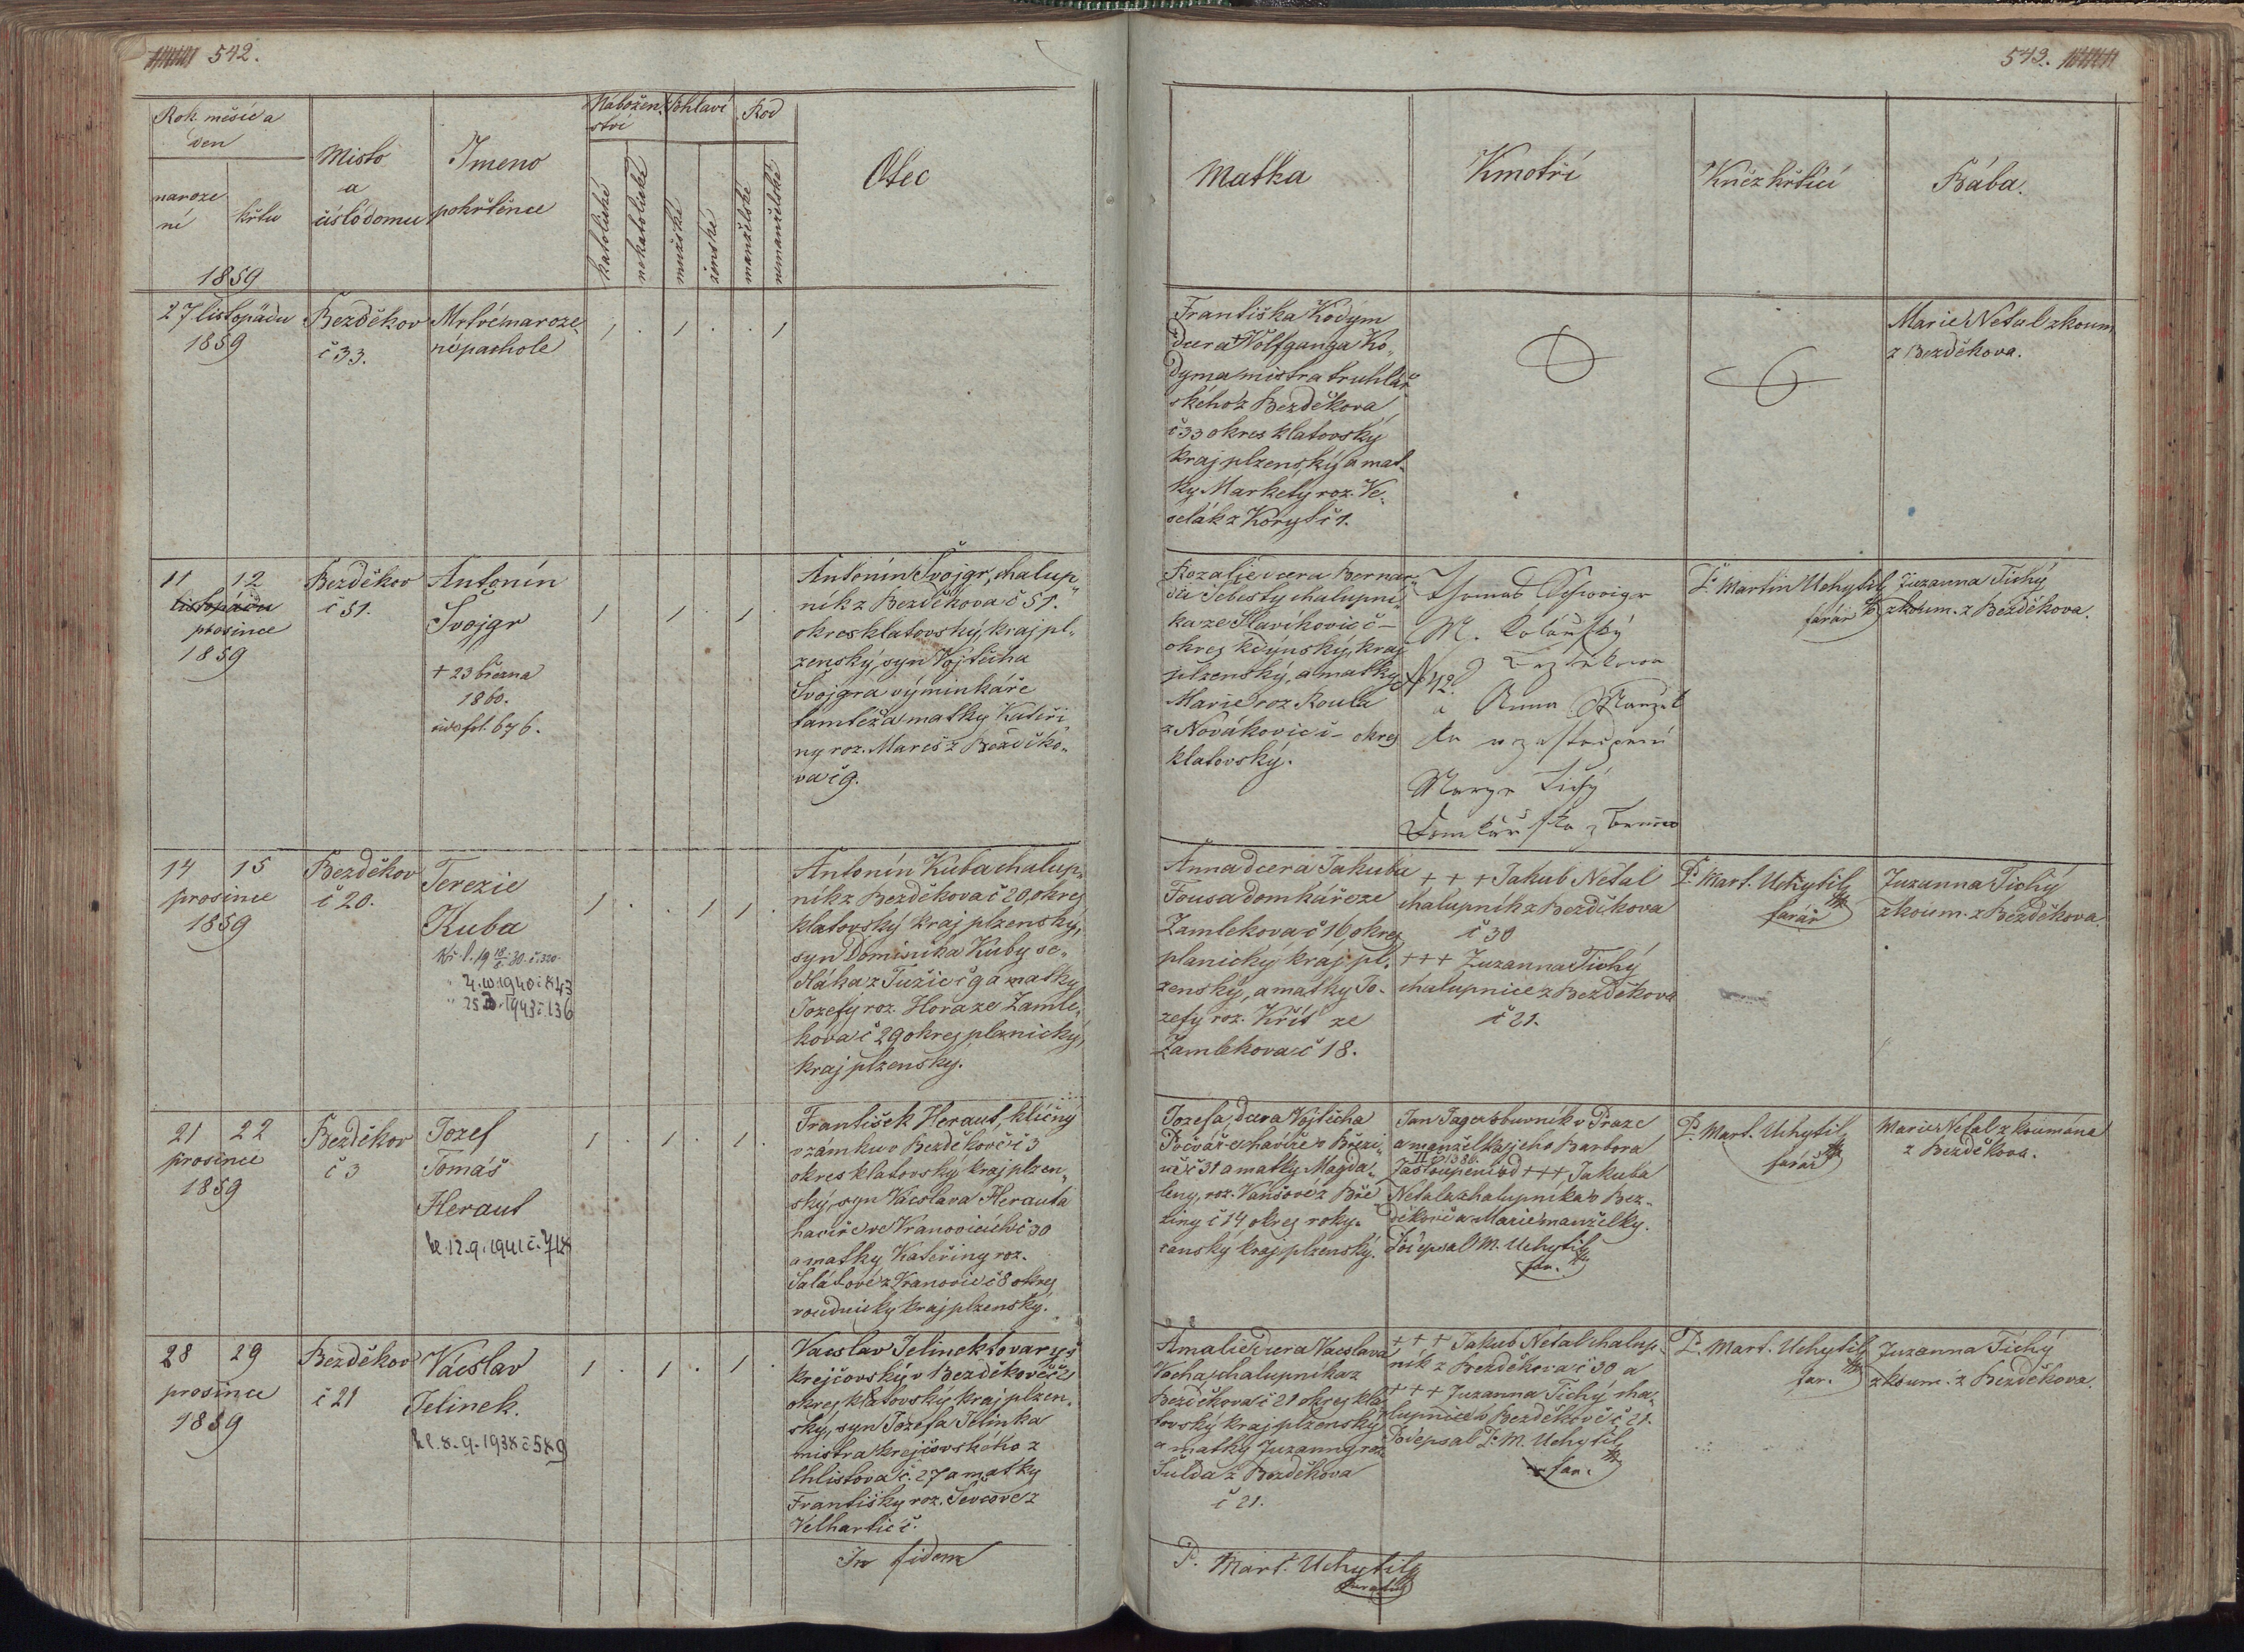 542.
543.
Rok měsíc a
den
naroze
ní
křtu
1859
Místo
a
číslo domu
Jmeno
pokřtěnce
Nábožen
ství
katolické
nekatolické
Pohlaví
mužské
ženské
Rod
manželské
nemanželské
Otec
Matka
Kmotři
Kněz křtící
Bába.
27 listopadu
1859
Bezděkov
č 33.
Mrtvě naroze
né pachole
Františka Kodym
dcera Wolfganga Ko„
dyma mistra truhlář
ského z Bezděkova
č 33 okres klatovský
kraj plzenský a mat„
ky Markety roz. Ve„
selák z Koryt č 1.
Marie Netal zkoum
z Bezděkova.
11 12
listopadu
prosince
1859
Bezděkov
č 51.
Antonín
Švojgr
+ 23 března
1860.
vide fol. 676.
Antonín Švojgr, chalup„
ník z Bezděkova č 51.
okres klatovský, kraj pl„
zenský, syn Vojtěcha
Švojgra výminkáře
tamtéž a matky Kateři
ny roz. Mareš z Bezděko„
va č 9.
Rozalie dcera Bernar„
da Šebesty chalupní„
ka ze Slavíkovic č –
okres kdýnský, kraj
plzenský, a matky
Marie roz Roula
z Novákovic č – okres
klatovský.
Thomas Schwoigr
M. Kolářský
z Bezděkowa
N 42.
a Anna Manžel
ka w zastaupení
Marya Tichý
P. Martin Uchytil
farář
Zuzanna Tichý
zkoum. z Bezděkova.
14 15
prosince
1859
Bezděkov
č 20.
Terezie
Kuba
Kř. l. 19 18/8 30. č. 320.
" 4. 10. 1940 č 843
Antonín Kuba chalup„
ník z Bezděkova č 20, okres
klatovský kraj plzenský,
syn Dominika Kuby se„
dláka z Tužic č 9 a matky
Jozefy roz. Hora ze Zamle„
kova č 29 okres planický,
kraj plzenský.
Anna dcera Jakuba
Fousa domkáře ze
Zamlekova č 16 okres
planický kraj pl„
zenský, a matky Jo„
zefy roz. Kříš ze
Zamlekova č 18.
+ + + Jakub Netal
chalupník z Bezděkova
č 30
+++ Zuzanna Tichý
chalupnice z Bezděkova
č 21.
P. Mart. Uchytil
farář
Zuzanna Tichý
zkoum. z Bezděkova.
21 22
prosince
1859
Bezděkov
č 3
Jozef
Tomáš
Heraut
kl. 12. 9. 1941 č. 718
František Heraut, klíčný
v zámku v Bezděkově č 3
okres klatovský, kraj plzen„
ský, syn Václava Herauta
havíře ve Vranovicích č 30
a matky Kateřiny roz.
Salátové z Vranovic č 8 okres
roudnický kraj plzenský.
Jozefa, dcera Vojtěcha
havíře v Březi„
ně č 31 a matky Magda„
leny, roz. Vaněové z Bře
ziny č 14 okres roky„
canský kraj plzenský.
Jan Jager v Praze
a manželka jeho Barbora
II č 1386.
Zastoupeni od +++ Jakuba
Netala chalupníka v Bez„
děkově a Marie manželky.
Podepsal M. Uchytil
far.
P. Mart. Uchytil
farář
Marie Netal zkoumána
z Bezděkova.
28 29
prosince
1859
Bezděkov
č 21
Václav
Jelinek.
kl. 8. 9. 1938 č 589
Vacslav Jelinek tovaryš
krejčovský v Bezděkově č 21
okres klatovský, kraj plzen„
ský, syn Jozefa Jelinka
mistra krejčovského z
Chlistova č. 27 a matky
Františky roz. Ševcove z
Velhartic č.
Amalie dcera Vacslava
Vacha chalupníka z
Bezděkova č 21 okres kla
tovský kraj plzenský
a matky Zuzanny roz
Šulda z Bezděkova
č 21.
+ + + Jakub Netal chalup„
ník z Bezděkova č 30 a
+++ Zuzanna Tichý cha„
lupnice v Bezděkově č 21.
Podepsal P. M. Uchytil
far.
P. Mart. Uchytil
far.
Zuzanna Tichý
zkoum. z Bezděkova.
In fidem
P. Mart. Uchytil